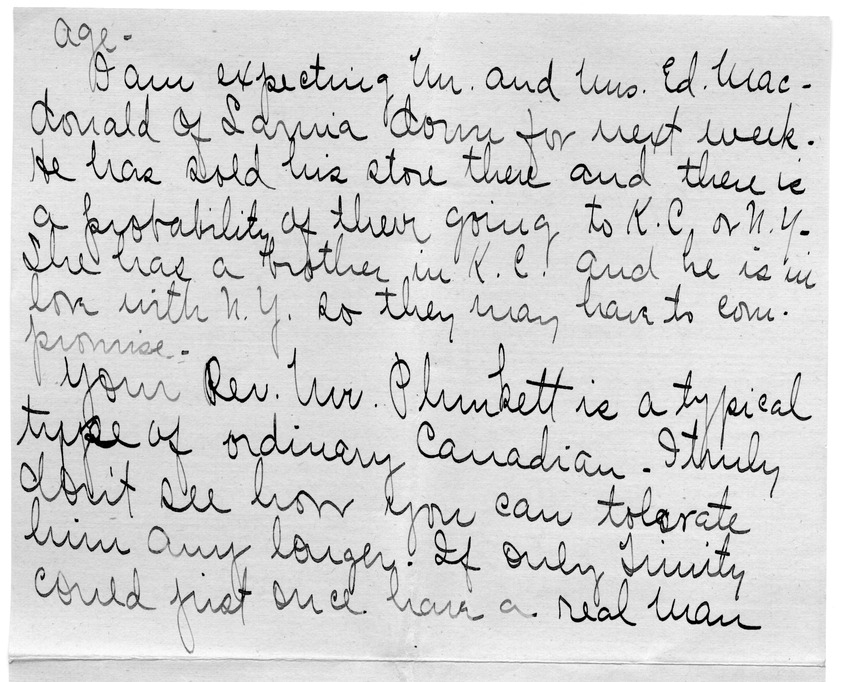 age.-
I am expecting Mr. and Mrs. Ed. Mac-
donald of Sarnia down for next week.
He has sold his store there and there is
a probability of their going to K.C. or N.Y.
She has a brother in K.C. and he is in
love with N.Y. so they may have to com-
promise.-
Your Rev. Mr. Plunkett is a typical
type of ordinary Canadian. I truly
don't see how you can tolerate
him any longer. If only Trinity
could just once have a real man